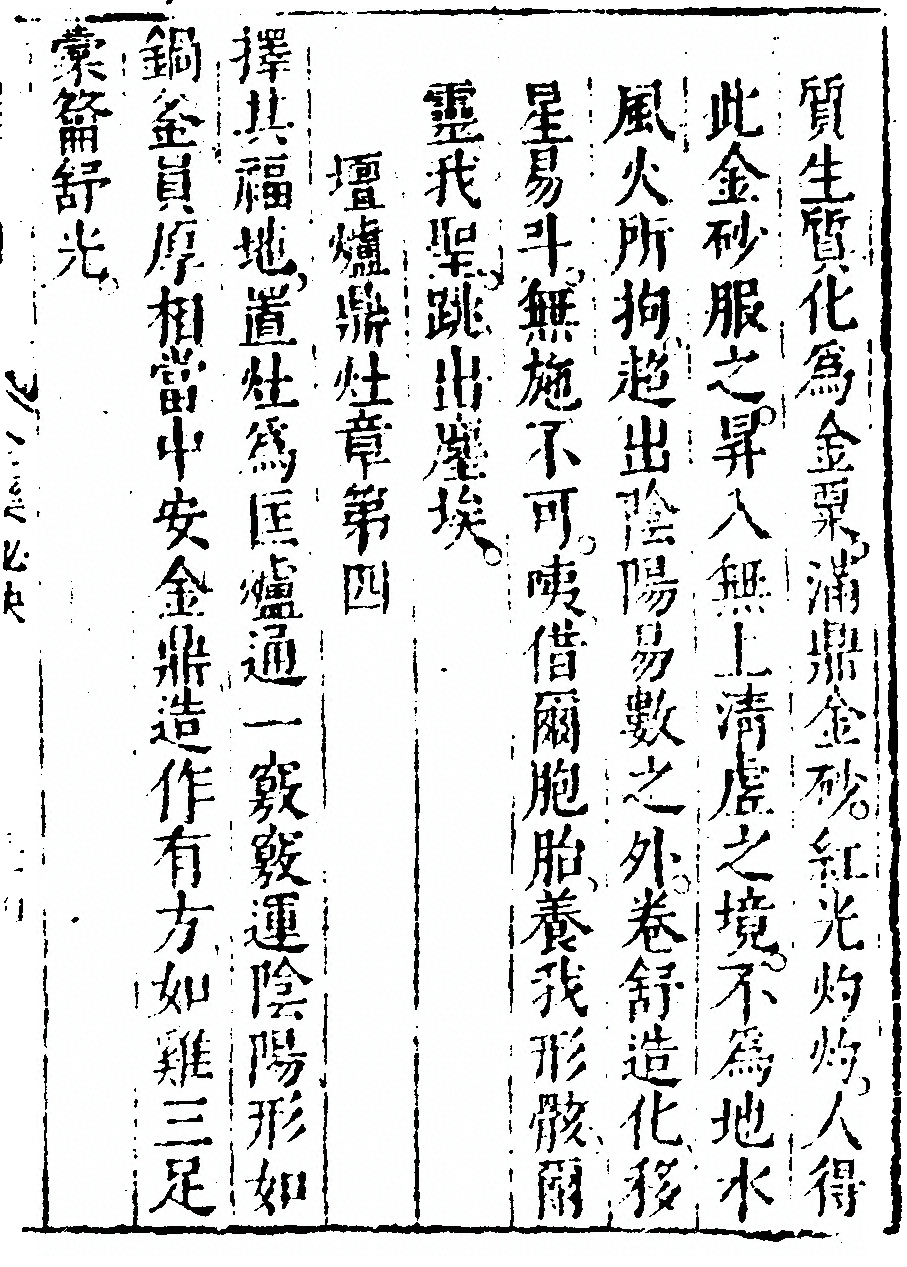 質生質化爲金粟、滿鼎金砂。紅光灼灼、人得
此金砂服之。昇入無上清虛之境。不爲地水
風火所拘、超出陰陽易數之外。卷舒造化、移
星易斗。無施不可。咦、借爾胞胎、養我形骸、爾
靈我聖、跳出塵埃。
壇爐鼎灶章第四
擇其福地、置灶爲匡爐通一竅竅運陰陽形如
鍋釜員厚相當中安金鼎造作有方如雞三足
橐籥舒光。